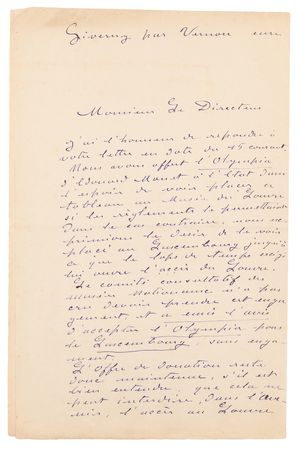 Giverny par Vernon eure
Monsieur Le Directeur
j'ai l'honneur de répondre à
votre lettre en date du 15 courant.
Nous avons offert l'Olympia
d'Edouard Manet à l'Etat dans
l'espoir de voir placer ce
tableau au Musée du Louvre
si les règlements le permettaient
dans le cas contraire nous ex-
primions le désir de le voir
placé au Luxembourg jusqu'à
ce que le laps de temps exigé
lui ouvre l'accès du Louvre.
Le comité consultatif des
musées Nationaux n'a pas
cru devoir prendre cet enga-
gement et a émis l'avis
d'accepter l'Olympia pour
le Luxembourg, sans enga-
gement.
L'Offre de Donation reste
donc maintenue, s'il est
bien entendu, que cela ne
peut interdire, dans l'ave-
nir, l'accès au Louvre